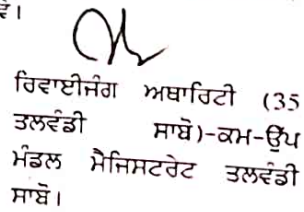 ਵੇਂ।
ਰਿਵਾਈਜਿੰਗ ਅਥਾਰਿਟੀ (35
ਤਲਵੰਡੀ ਸਾਬੋ)-ਕਮ-ਉਪ
ਮੰਡਲ ਮੈਜਿਸਟਰੇਟ ਤਲਵੰਡੀ
ਸਾਬੋ।